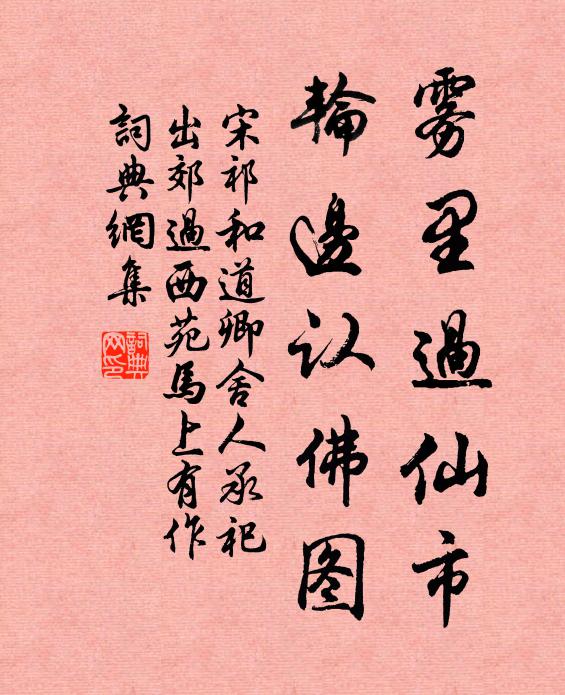 雾里過仙市
輪邊认佛图
宋祁和道卿舍人承祀
出郊過西苑馬上有作
詞典網集
詞典网印